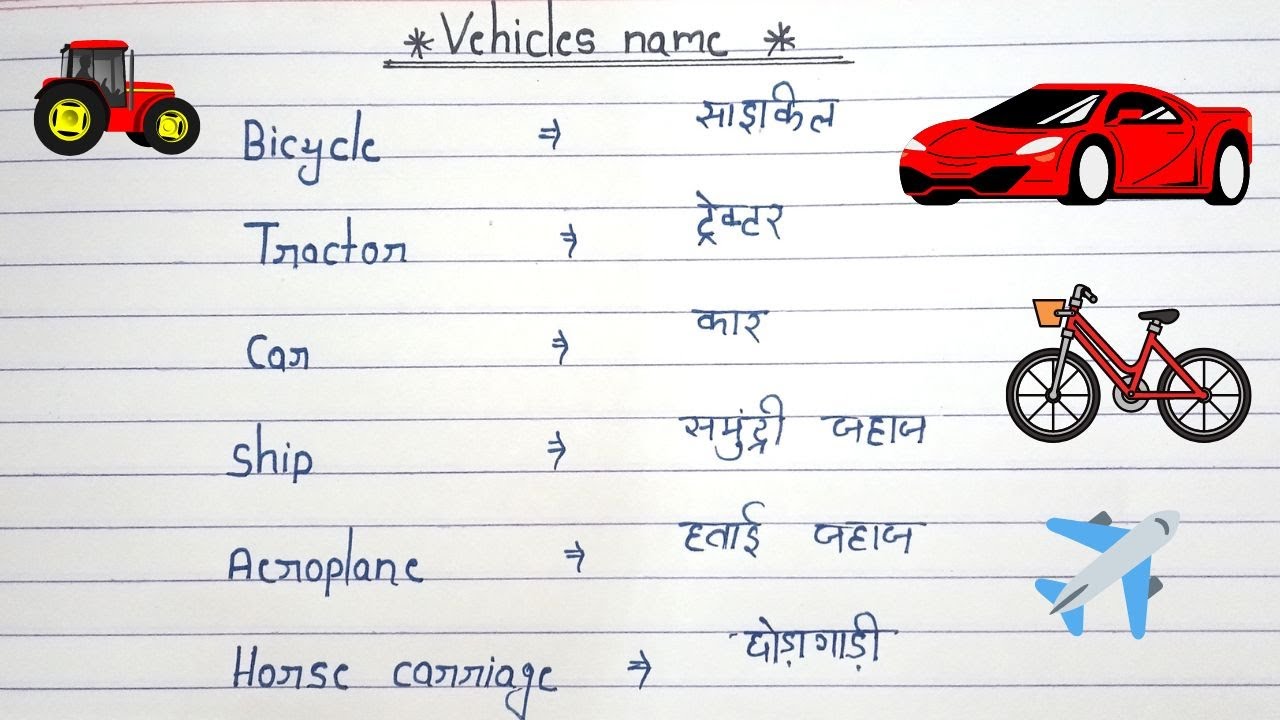 * Vehicles name *
Bicycle ⇒ साइकिल
Tractor ⇒ ट्रेक्टर
Car ⇒ कार
Ship ⇒ समुंद्री जहाज
Aeroplane ⇒ हवाई जहाज
Horse carriage ⇒ घोड़ागाड़ी